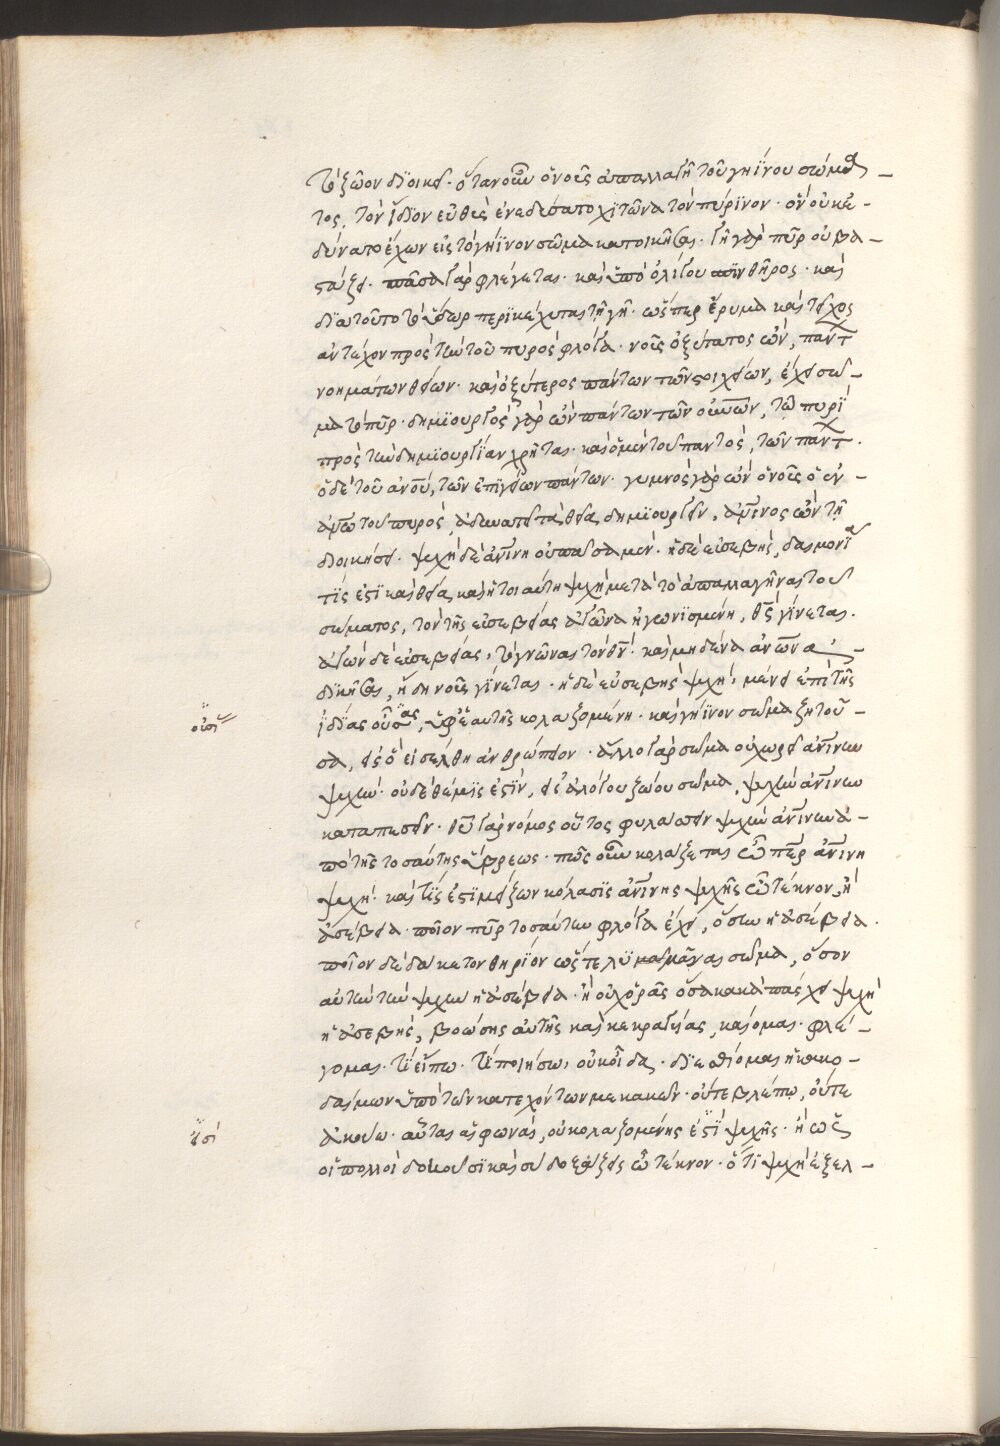 τὸ ζῶον διοικεῖ. ὅταν οὖν ὁ νοῦς ἀπαλλαγῆ τοῦ γηΐνου σώμα–
τος, τὸν ἴδϊον εὐθὺς ἐνεδύσατο χϊτῶνα τὸν πύρϊνον· ὃν οὐκ ἐ–
δύνατο ἔχων εἰς τὸ γήϊνον σῶμα κατοικῆσαι. γῆ γὰρ πῦρ οὐ βα–
στάζει. πᾶσα γὰρ φλέγεται· καὶ ὑπὸ ὀλίγου σπϊνθῆρος· καὶ
δϊα τοῦτο τὸ ὕδωρ περϊκέχυται τῆ γῆ. ὥσπερ ἔρυμα καὶ τεῖχος
ἀντέχον πρὸς τὴν τοῦ πυρὸς φλόγα· νοῦς ὀξύτατος ὢν, πάντ
νοημάτων θείων. καὶ ὀξύτερος πάντων τῶν στοιχείων, ἔχει σῶ–
μα τὸ πῦρ. δημϊουργὸς γὰρ ὢν πάντων τῶν οὐνῶν, τῶ πυρῒ
πρὸς τὴν δημϊουργΐαν χρῆται. καὶ ὁ μὲν τοῦ παντὸς, τῶν πάντ.
ὁ δὲ τοῦ ἀνοῦ, τῶν ἐπϊγείων πάντων. γυμνὸς γὰρ ὢν ὁ νοῦς ὁ ἐν –
ἀνω τοῦ πυρὸς, ἀδυνατεῖ τὰ θεῖα δημϊουργεῖν. ἀνινος ὢν τῆ
διοικήσει. ψυχὴ δὲ ἀνινη οὐ πᾶσα μὲν. ἡ δὲ εὐσεβὴς, δαιμονΐα
τῒς ἐστῒ καὶ θεία, καὶ ἤτοι αὕτη ψυχὴ μετὰ τὸ ἀπαλλαγῆναι τοῦ
σώματος, τὸν τῆς εὐσεβείας ἀγῶνα ἠγωνϊσμένη, θς γίνεται.
ἀγὼν δὲ εὐσεβείας, τὸ γνῶναι τὸν θν. καὶ μηδένα ἀνων ἀ–
δϊκῆσαι, ἤδη νοῦς γΐνεται. ἡ δὲ εὐσεβὴς ψυχὴ, μένει ἐπὶ τῆς
ἰδΐας οὐσίας, ὑφ’ ἑαυτῆς κολαζομένη. καὶ γήϊνον σῶμα ζητοῦ–
οὐσΐ
σα, εἰς ὃ εἰσέλθη ἀνθρώπειον. ἄλλο γὰρ σῶμα οὐ χωρεῖ ἀνινην
ψυχὴν. οὐδὲ θέμϊς ἐστῒν, εἰς ἀλόγου ζώου σῶμα, ψυχὴν ἀνινην
καταπεσεῖν. θυ γὰρ νόμος οὗτος φυλάσσειν ψυχὴν ἀνινην ἀ–
πὸ τῆς τοσαύτης ὕβρεως. πῶς οὖν κολάζεται ὦ περ ἀνινη
ψυχὴ. καὶ τῒς ἐστῒ μείζων κόλασϊς ἀνινης ψυχῆς ὦ τέκνον, ἢ
ἀσέβεια. ποῖον πῦρ τοσαύτην φλόγα ἔχει, ὅσην ἡ ἀσέβεια.
ποῖον δὲ δακετὸν θηρίον ὥστε λυμᾶναι σῶμα, ὅσον
αὐτὴν τὴν ψυχὴν ἡ ἀσέβεια. ἢ οὐχ ὁρᾶς ὅσα κακὰ πάσχει ψυχὴ
ἡ ἀσεβὴς, βοώσης αὐτῆς καὶ κεκραγυίας, καίομαι. φλέ–
γομαι. τΐ εἴπω. τΐ ποιήσω, οὐκ οἶδα. δϊεσθίομαι ἡ κακο–
δαίμων ὑπὸ τῶν κατεχόντων με κακῶν. οὔτε βλέπω, οὔτε
ἀκούω. αὗται αἱ φωναὶ, οὐ κολαζομένης ἐστῒ ψυχῆς. ἢ ὡς
ἐισὶ
οἱ πολλοὶ δοκοῦσϊ καὶ σὺ δοξάζεις ὦ τέκνον. ὅτϊ ψυχὴ ἐξελ–